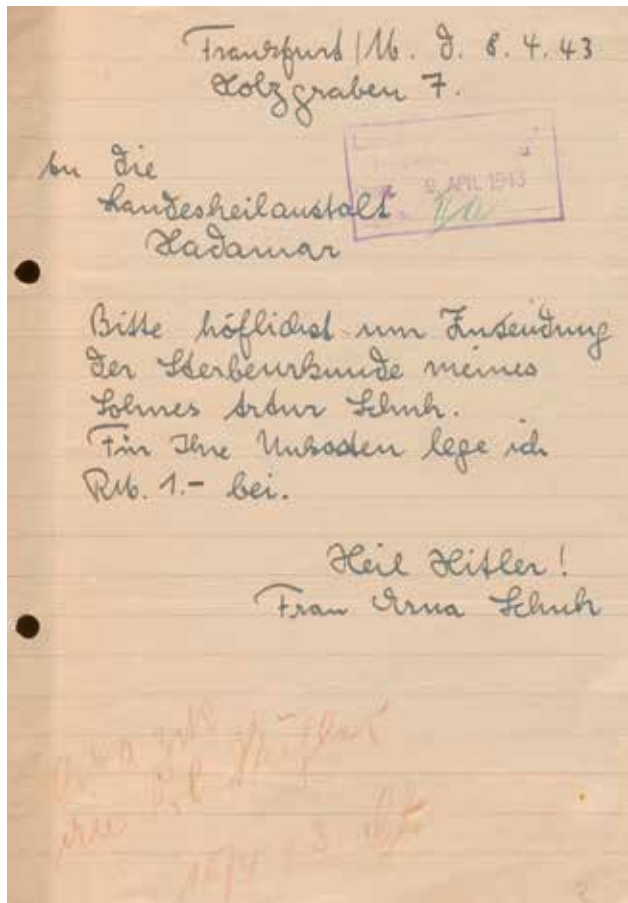 Frankfurt/M. d. 8.4.43
Holzgraben 7.
An die
Landesheilanstalt
Hadamar
9. APRIL 1943
Bitte höflichst um Zusendung
der Sterbeurkunde meines
Sohnes Artur Schuh.
Für Ihre Unkosten lege ich
RM. 1.- bei.
Heil Hitler!
Frau Erna Schuh